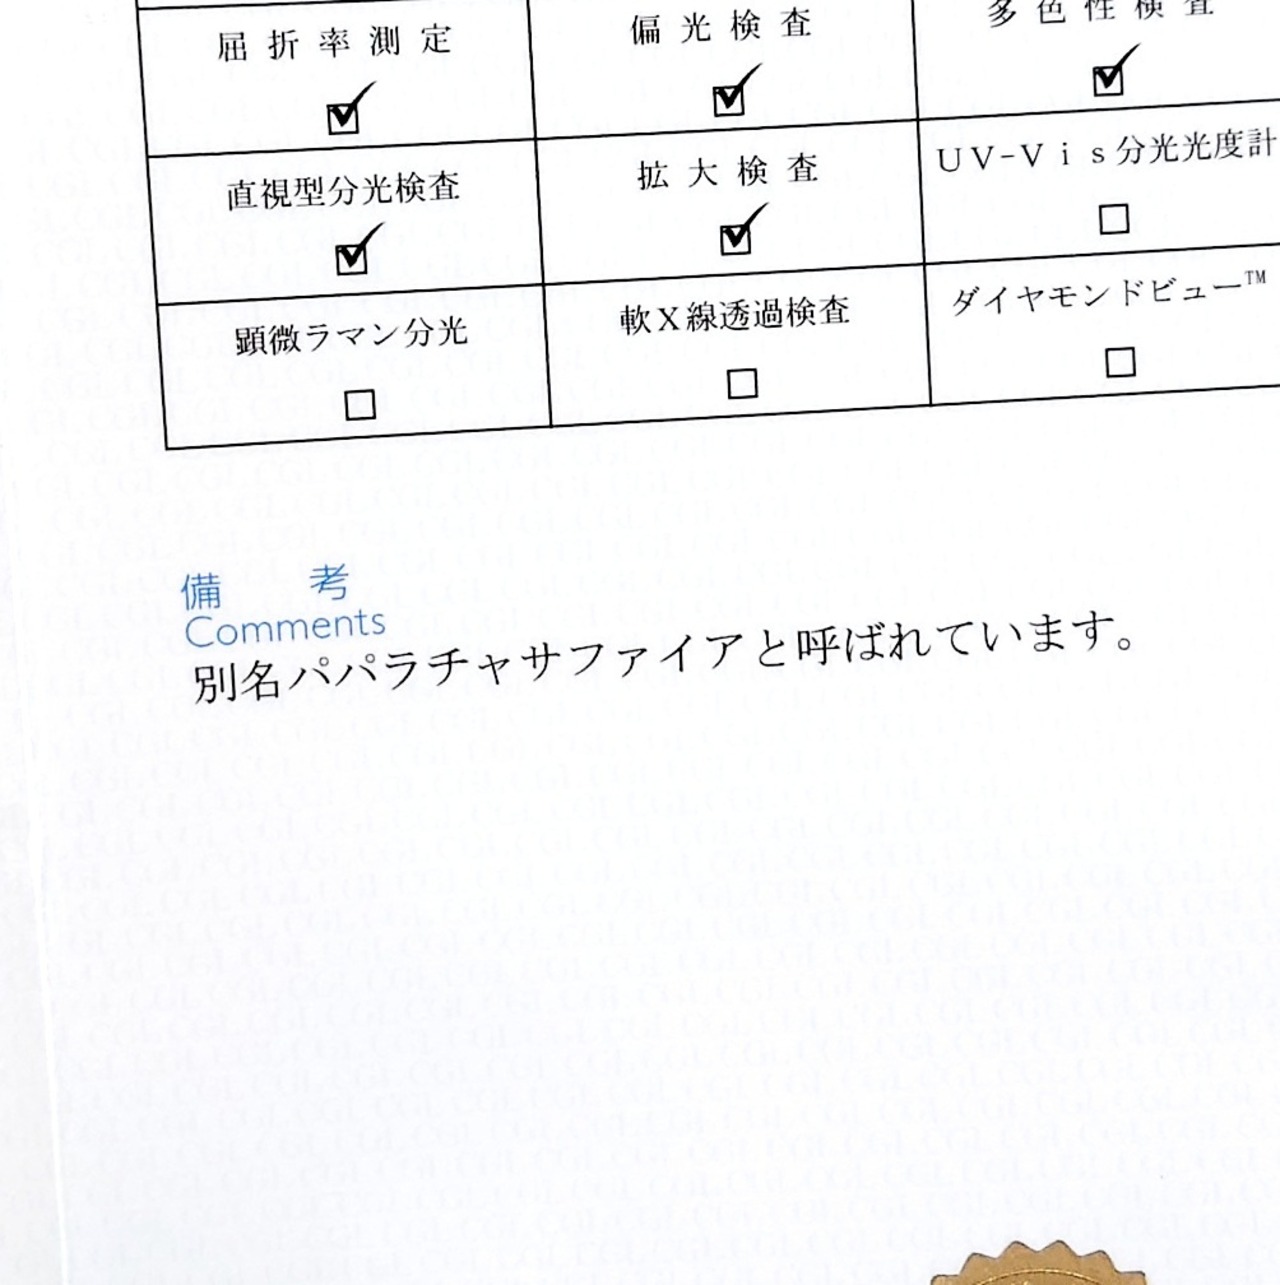 屈折率測定 偏光検査 多色性検査
直視型分光検査 拡大検査 UV-Vis分光光度計
顕微ラマン分光 軟X線透過検査 ダイヤモンドビュー™
備考
Comments
別名パパラチャサファイアと呼ばれています。